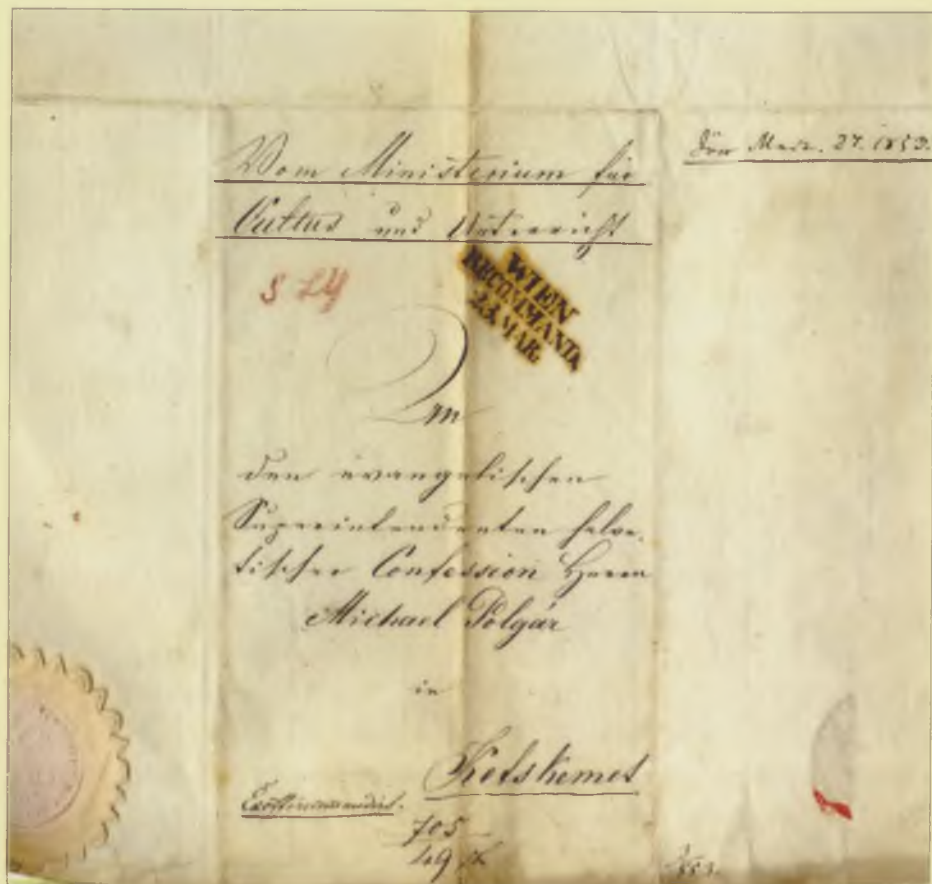 Vom Ministerium für
Cultus und Unterricht
Mart. 27. 1853.
WIEN
RECOMMANDI
23. MAR.
An
den evangelischen
Superintendenten helve-
tischer Confession Herrn
Michael Polgár
in
Ketskemet
705
1853.